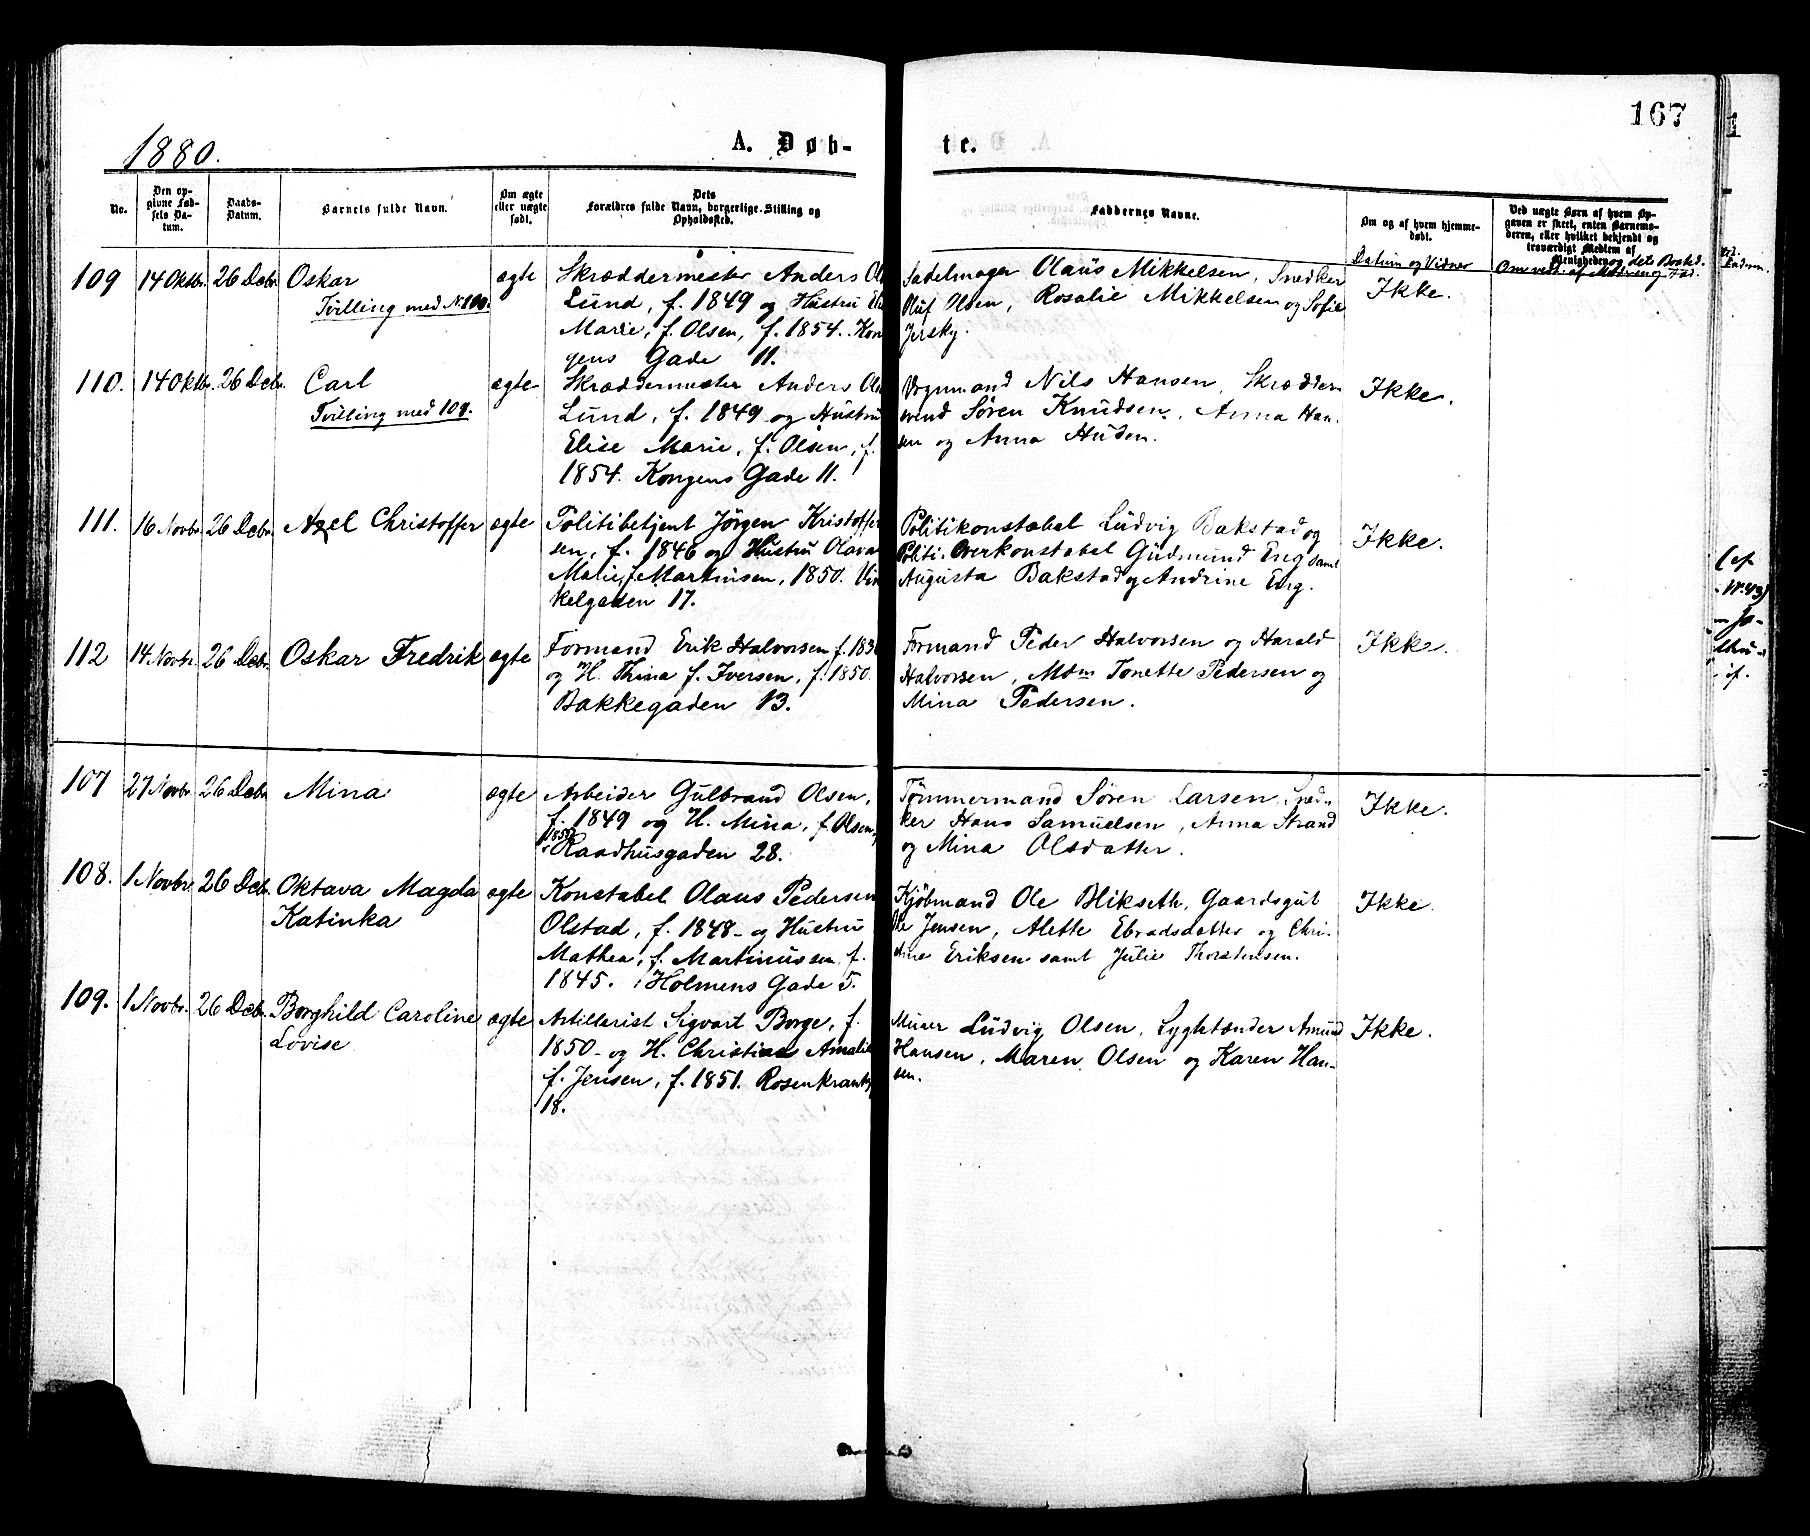 167
1880.
A. Døb-
te.
No.
Den op-
givne Fød-
sels Da-
tum.
Daabs-
Datum.
Barnets fulde Navn.
Om ægte
eller uægte
født.
Dets
Forældres fulde Navn, borgerlige Stilling og
Opholdssted.
Faddernes Navne.
Om og af hvem hjemme-
døbt.
Datum og Vidner
Ved uægte Børn af hvem Op-
gaven er skeet, enten Barnemo-
deren, eller hvilket bekjendt og
troværdigt Medlem af
Menigheden og det Bosted.
109 14 Oktbr. 26 Decbr. Oskar ægte Skræddermester Anders
Tvilling med N. 110.
Lund, f. 1849 og Hustru
Marie, f. Olsen, f. 1854. Kon
gens Gade 11.
Sadelmager Olaus Mikkelsen, Snedker
Oluf Olsen, Rosalie Mikkelsen og Sofie
Jersky.
Ikke.
110. 14 Oktbr. 26 Decbr. Carl ægte Skræddermester Anders
Tvilling med 109.
Lund, f. 1849 og Hustru
Elise Marie, f. Olsen, f.
1854. Kongens Gade 11.
Vognmand Nils Hansen, Skrædder
svend Søren Knudsen, Anna Han-
sen og Anna Huden.
Ikke.
111. 16 Novbr. 26 Decbr. Axel Christoffer ægte Politibetjent Jörgen Kristoffer
sen, f. 1846 og Hustru Olava
Malie, f. Martinsen, 1850. Vin
kelgaden 17.
Politikonstabel Ludvig Bakstad og
Politi-Overkonstabel Gudmund Eng samt
Augusta Bakstad og Andrine Eng.
Ikke.
112 14 Novbr. 26 Decbr. Oskar Fredrik ægte Formand Erik Halvorsen f. 183
og H. Thina f. Iversen, f. 1850.
Bakkegaden 13.
Formand Peder Halvorsen og Harald
Halvorsen, Mdm Tonette Pedersen og
Mina Pedersen.
Ikke.
107 27 Novbr. 26 Decbr. Mina ægte Arbeider Gulbrand Olsen,
f. 1849 og H. Mina, f. Olsen,
1852
Raadhusgaden 28.
Tømmermand Søren Larsen, Sned-
ker Hans Samuelsen, Anna Strand
og Mina Olsdatter.
Ikke.
108. 1 Novbr. 26 Decbr. Oktava Magda ægte Konstabel Olaus Pedersen
Katinka
Olstad, f. 1848 - og Hustru
Mathea, f. Martinussen f.
1845. Holmens Gade 5.
Kjöbmand Ole Blikseth, Gaardsgut
Ole Jensen, Alette Ebradsdatter og Chri-
stine Eriksen samt Julie Thorstensen.
Ikke.
109. 1 Novbr. 26 Decbr. Borghild Caroline ægte Artillerist Sigvart Borge, f.
Lovise
1850 - og H. Christine Amalie
f. Jensen, f. 1851. Rosenkrantz
18.
Murer Ludvig Olsen, Lygtetænder Amund
Hansen, Maren Olsen og Karen Han-
sen.
Ikke.